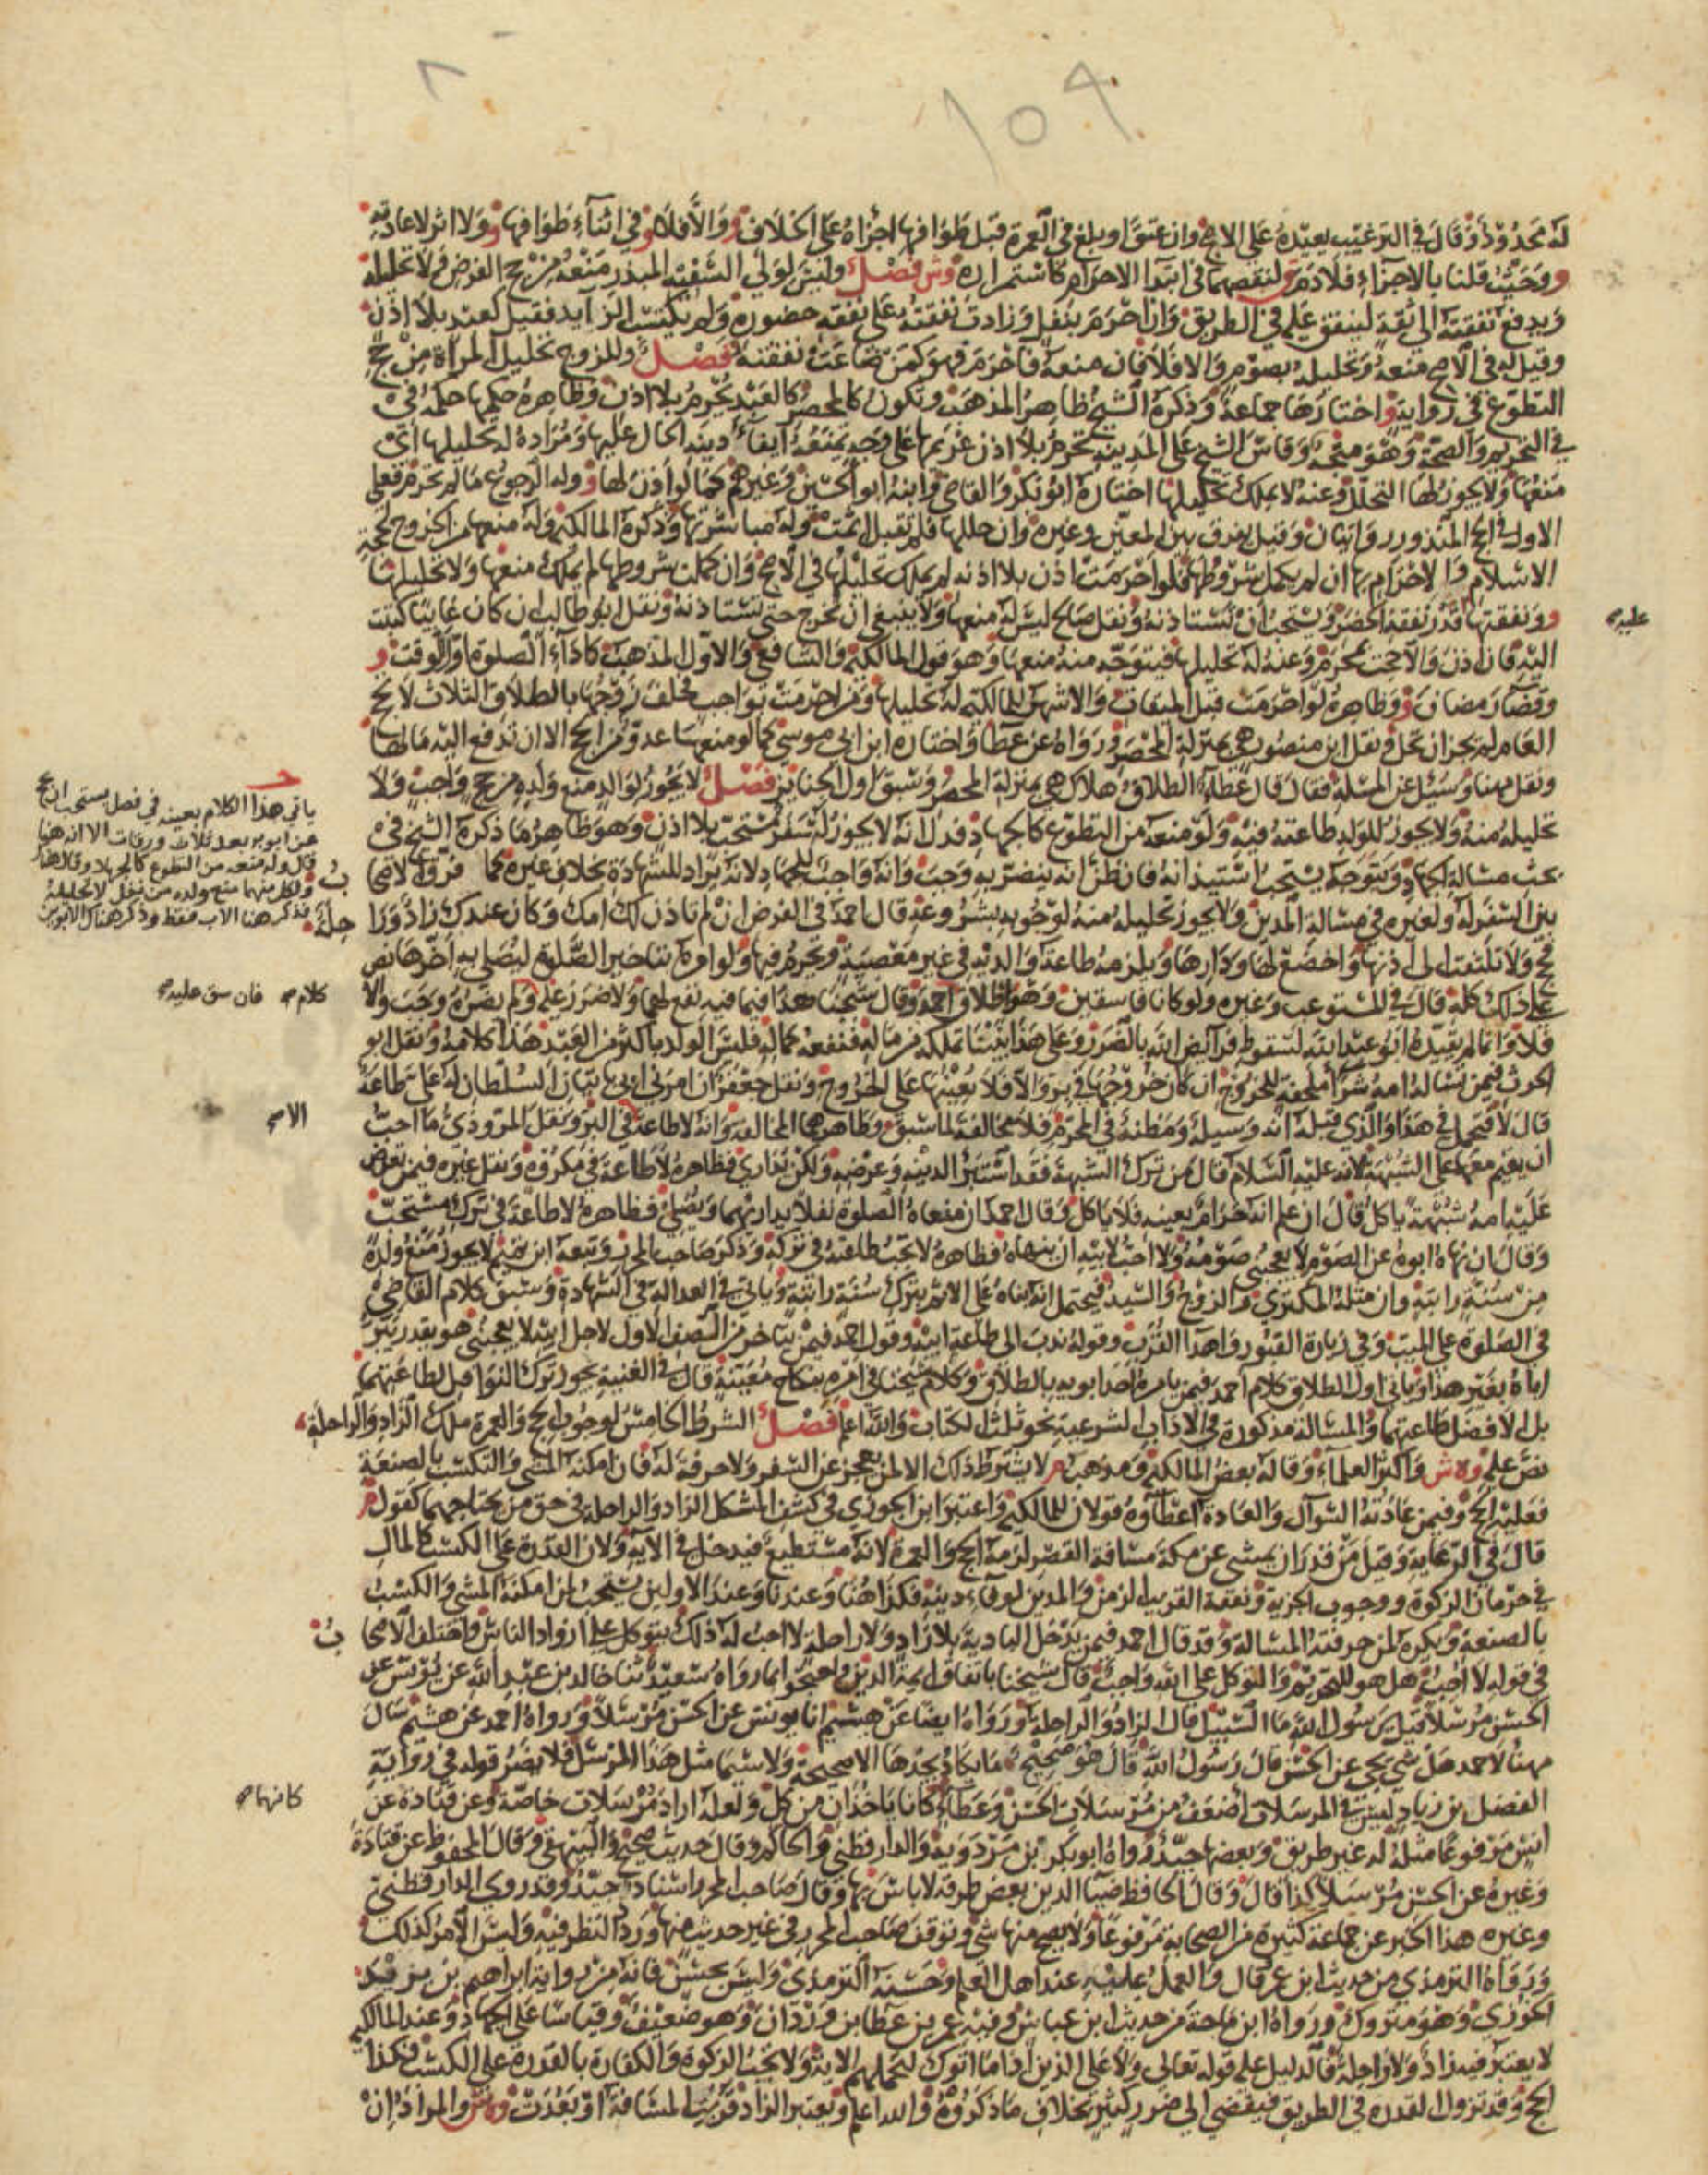 ١٥٩
له محدود وقال في الترغيب يعيده على الاصح وان عتق او بلغ في العمرة قبل طوافها اجزاه على الخلاف و والا فلا و وفي اثناء طوافها و ولا اثر لاعادته
و وحيث قلنا بالاجزاء فلا دم لنقصهما في ابتدا الاحرام كاستمراره وش فصل وليس لولي السفيه المبذر منعه من حج الفرض ولا تحليله
ويدفع نفقته الى ثقة لينفق عليه في الطريق وان احرم بنفل وزادت نفقته على نفقة حضوره ولم يكتسب الزايد فقيل كعبد بلا اذن
وقيل له في الاصح منعه وتحليله بصوم والا فلا فان منعه فاحرم فهو كمن ضاعت نفقته فصل وللزوج تحليل المراة من حج
التطوع في رواية واختارها جماعة وذكره الشيخ ظاهر المذهب وتكون كالمحصر كالعبد يحرم بلا اذن وظاهره حكمها حكمه في
في التحريم والصحة وهو متجه وقاس الشيخ على المدينة تحرم بلا اذن غريمها على وجه يمنعه ايفاء دينه الحال عليها ومراده له تحليلها اي
منعها ولا يجوز لها التحلل وعنه لا يملك تحليلها اختاره ابو بكر والقاضي وابنه ابو الحسين وغيرهم كما لو اذن لها و وله الرجوع ما لم تحرم فعلى
الاول في الحج المنذور روايتان وقيل يفرق بين المعين وغيره وان حللها فلم تقبل اثمت وله مباشرتها وذكره المالكية وله منعها من الخروج لحجة
الاسلام والاحرام بها ان لم يكمل شروطها فلو احرمت اذن بلا اذنه لم يملك تحليلها في الاصح وان كملت شروطها لم يملك منعها ولا تحليلها
و ونفقتها قدر نفقة الحضر ويستحب ان تستاذنه ونقل صالح ليس له منعها ولا ينبغي ان تخرج حتى تستاذنه ونقل ابو طالب ان كان غايبا كتبت
عليه
اليه فان اذن والا حجت بمحرم وعنه له تحليلها فيتوجه منه منعها وهو قول المالكية والشافعي والاول المذهب كاداء الصلوة اول الوقت و
وقضا رمضان و وظاهره لو احرمت قبل الميقات والاشهر للمالكية له تحليلها ومن احرمت بواجب فحلف زوجها بالطلاق الثلاث لا تحج
العام لم يجز ان تحل ونقل ابن منصور هي بمنزلة المحصر ورواه عن عطا واختاره ابن ابي موسى كما لو منعها عدو من الحج الا ان تدفع اليه مالها
ونقل مهنا وسئل عن المسلة فقال قال عطا الطلاق هلاك هي بمنزلة المحصر وسبق اول الجنايز فصل لا يجوز لوالد منع ولده من حج واجب ولا
تحليله منه ولا يجوز للولد طاعته فيه وله منعه من التطوع كالجهاد فدل انه لا يجوز له سفر مستحب بلا اذن وهو ظاهر ما ذكره الشيخ في
باقي هذا الكلام بعينه في فصل يستحب ان يحج
عن ابويه بعد ثلاث ورقات الا انه هنا
قال وله منعه من التطوع كالجهاد وقال هناك
ولكل منهما منع ولده من نفل لا تحليله
فذكر هنا الاب فقط وذكر هناك الابوين
بحث مسالة الجهاد ويتوجه يستحب استيذانه فان ظن انه يتضرر به وجب وانه واجب للجهاد لانه يراد للشهادة بخلاف غيره مما فرق الاصحاب
بين السفر له ولغيره في مسالة المدين ولا يجوز تحليله منه لوجوبه بشروعه قال احمد في الفرض ان لم تاذن لك امك وكان عندك زاد وراحلة
فحج ولا تلتفت الى اذنها واخضع لها ودارها ويلزمه طاعة والديه في غير معصية وتحرم فيها ولو امره بتاخير الصلوة ليصلي به اخرها نص
على ذلك كله قال في المستوعب وغيره ولو كانا فاسقين وهو اطلاق كلام احمد وقال شيخنا هذا فيما فيه نفع لهما ولا ضرر عليه فان شق عليه ولم يضره وجب والا
فلا وانما لم يقيده ابو عبد الله لسقوط فرائض الله بالضرر وعلى هذا بنينا تملكه من ماله فنفعه كماله فليس الولد باكثر من العبد هذا كلامه ونقل ابو
الحرث فيمن تساله امه شرا ملحفة للخروج ان كان خروجها في بر والا فلا يعينها على الخروج ونقل جعفر ان امرني ابي باتيان السلطان له على طاعة
قال لا فيحمل في هذا والذي قبله انه وسيلة ومظنة في المحرم فلا مخالفة لما سبق وظاهرهما المخالفة وانه لا طاعة الا في البر ونقل المروذي ما احب
ان يقيم معها على الشبهة لانه عليه السلام قال من ترك الشبهة فقد استبرا لدينه وعرضه ولكن يداري فظاهره لا طاعة في مكروه ونقل غيره فيمن تعرض
عليه امه شبهة باكل قال ان علم انه حرام بعينه فلا ياكل وقال احمد ان منعاه الصلوة نفلا يداريهما ويصلي فظاهره لا طاعة في ترك مستحب
وقال ان نهاه ابوه عن الصوم لا يعجبني صومه ولا احب لابيه ان ينهاه فظاهره لا تجب طاعته في تركه وذكر صاحب المحرر وتبعه ابن تميم لا يجوز منع ولده
من سنة راتبة وان مثله المكتري والزوج والسيد فيحتمل انه بناه على الاثم بترك سنة راتبة وياتي في العدالة في الشهادة وسبق كلام القاضي
في الصلوة على الميت وفي زيارة القبور واهدا القرب وقوله ندب الى طاعة ابيه وقول احمد فيمن يتاخر من الصف الاول لاجل ابيه لا يعجبني هو يقدر يبر
اباه بغير هذا وياتي اول الطلاق كلام احمد فيمن يامره احد ابويه بالطلاق وكلام شيخنا في امره بنكاح معينة قال في الغنية يجوز ترك النوافل لطاعتهما
بل الافضل طاعتهما والمسالة مذكورة في الاداب الشرعية نحو ثلث الكتاب والله اعلم فصل الشرط الخامس لوجوب الحج والعمرة ملك الزاد والراحلة
نص عليه وه ش واكثر العلماء وقاله بعض المالكية ومذهب م لا يشترط ذلك الا لمن يعجز عن السفر ولا حرفة له فان امكنه المشي والتكسب بالصنعة
فعليه الحج وفيمن عادته السوال والعادة اعطاوه قولان للمالكية واعتبر ابن الجوزي في كشف المشكل الزاد والراحلة في حق من يحتاجهما كقول م
قال في الرعاية وقيل من قدر ان يمشي عن مكة مسافة القصر لزمه الحج والعمرة لانه مستطيع فيدخل في الاية ولان القدرة على الكسب كالمال
في حرمان الزكوة ووجوب الجزية ونفقة القريب الزمن والمدين لوفاء دينه فكذا هنا وعندنا وعند الاولين يستحب لمن امكنه المشي والكسب
بالصنعة ويكره لمن حرفته المسالة وقد قال احمد فيمن يدخل البادية بلا زاد ولا راحلة لا احب له ذلك يتوكل على ازواد الناس واختلف الاصحاب
في قوله لا احب هل هو للتحريم والتوكل على الله واجب قال شيخنا باتفاق ايمة الدين واحتجوا بما رواه سعيد ثنا خالد بن عبد الله عن يونس عن
الحسن مرسلا قيل يرسول الله ما السبيل قال الزاد والراحلة ورواه ايضا عن هشيم انا يونس عن الحسن مرسلا ورواه احمد عن هشيم سال
مهنا لاحمد هل شي يجي عن الحسن قال رسول الله قال هو صحيح ما يكاد يجدها الا صحيحة ولا سيما مثل هذا المرسل فلا يضر قوله في رواية
الفضل بن زياد ليس في المرسلات اضعف من مرسلات الحسن وعطاء كانهما كانا ياخذان من كل ولعله اراد مرسلات خاصة وعن قتادة عن
انس مرفوعا مثله له غير طريق وبعضها جيد ورواه ابو بكر بن مردويه والدارقطني والحاكم وقال حديث صحيح والبيهقي وقال المحفوظ عن قتادة
وغيره عن الحسن مرسلا كذا قال وقال الحافظ ضيا الدين بعض طرقه لا باس بها وقال صاحب المحرر اسناد جيد وقد روى الدارقطني
وغيره هذا الخبر عن جماعة كثيرة من الصحابة مرفوعا ولا يصح منها شي وتوقف صاحب المحرر في غير حديث منها وردد النظر فيه وليس الامر كذلك
ورواه الترمذي من حديث ابن عمر قال والعمل عليه عند اهل العلم وحسنه الترمذي وليس بحسن فانه من رواية ابراهيم بن يزيد
الخوزي وهو متروك ورواه ابن ماجة من حديث ابن عباس وفيه عمر بن عطا بن وردان وهو ضعيف وقياسا على الجهاد وعند المالكية
لا يعتبر فيه زاد ولا راحلة فالدليل عليه قوله تعالى ولا على الذين اذا ما اتوك لتحملهم الاية ولا تجب الزكوة والكفارة بالقدرة على الكسب فكذا
الحج وقد تزول القدرة في الطريق فيفضي الى ضرر كثير بخلاف ما ذكروه والله اعلم ويعتبر الزاد قربت المسافة او بعدت وه ش والمراد ان